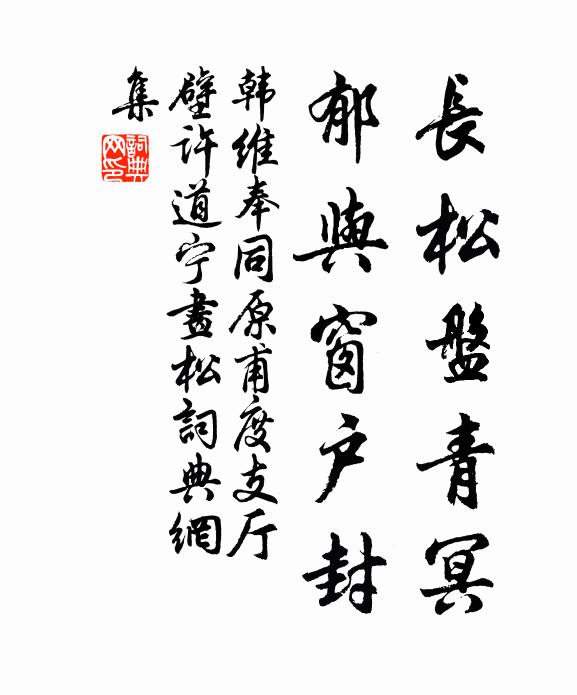 長松盤青冥
郁與窗戶封
韩維奉同原甫度支厅
壁许道宁畫松詞典網
集
詞典
网印